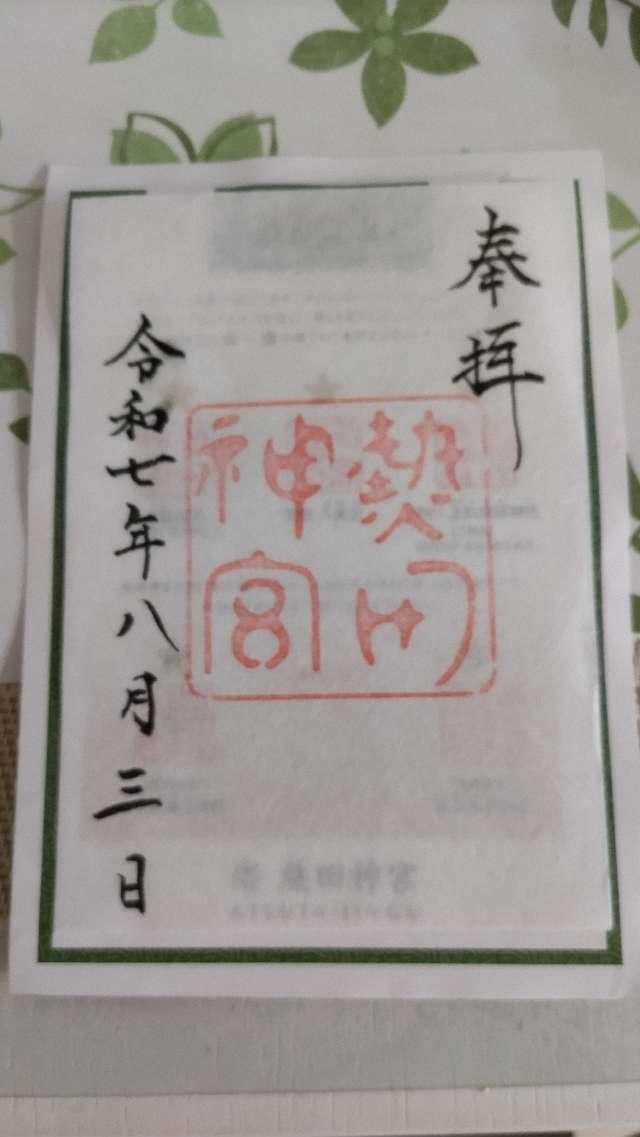 奉拝
熱田
神宮
令和七年八月三日